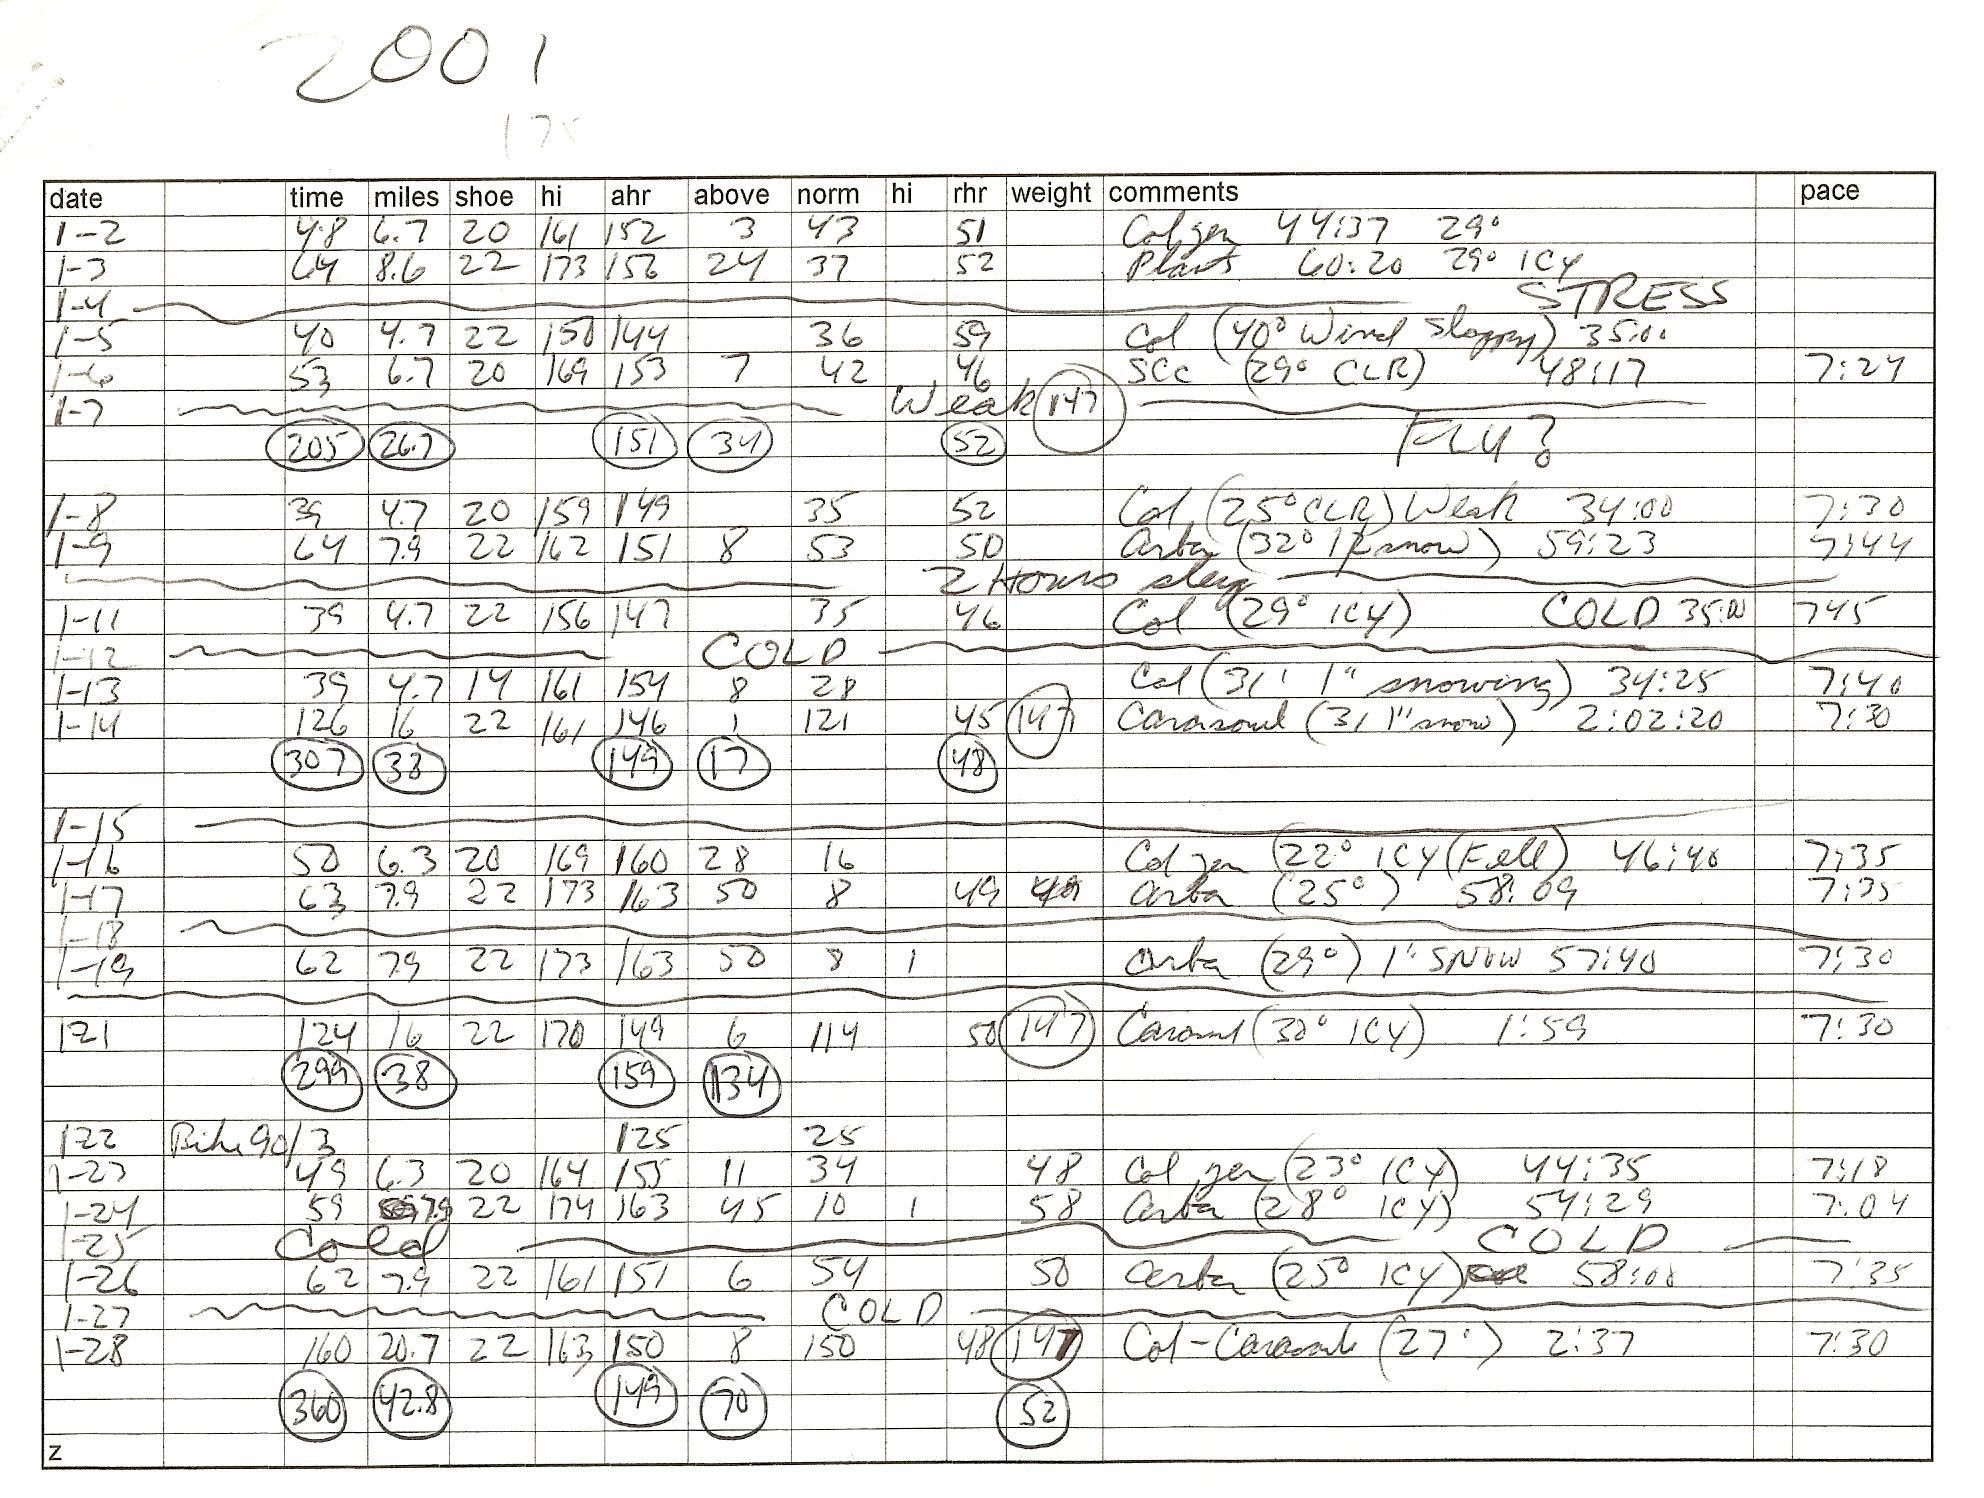 2001
175
date time miles shoe hi ahr above norm hi rhr weight comments pace
1-2 48 6.7 20 161 152 3 43 51 Col gen 44:37 29°
1-3 64 8.6 22 173 156 24 37 52 Plants 60:20 29° ICY
1-4 STRESS
1-5 40 4.7 22 150 144 36 59 Col (40° Wind Sloppy) 35:00
1-6 53 6.7 20 169 153 7 42 46 SCC (29° CLR) 48:17 7:24
1-7 Weak 147
205 26.7 151 34 52 FLU?
1-8 39 4.7 20 159 149 35 52 Col (25° CLR) Weak 34:00 7:30
1-9 64 7.9 22 162 151 8 53 50 Arba (32° snow) 59:23 7:44
2 Hours sleep
1-11 39 4.7 22 156 147 35 46 Col (29° ICY) COLD 35:00 745
1-12 COLD
1-13 39 4.7 14 161 154 8 28 Col (31° 1" snowing) 34:25 7:40
1-14 126 16 22 161 146 1 121 45 147 (31 1" snow) 2:02:20 7:30
307 38 149 17 48
1-15
1-16 50 6.3 20 169 160 28 16 Col gen (22° ICY (Fell) 46:40 7:35
1-17 63 7.9 22 173 163 50 8 49 Arba (25°) 58:09 7:35
1-18
1-19 62 79 22 173 163 50 8 1 Arba (29°) 1" SNOW 57:40 7:30
121 124 16 22 170 149 6 114 50 147 (30° ICY) 1:59 7:30
299 38 159 134
122 Bike 90/3 125 25
1-23 49 6.3 20 164 155 11 34 48 Col gen (23° ICY) 44:35 7:18
1-24 59 7.9 22 174 163 45 10 1 58 Arba (28° ICY) 54:29 7:04
1-25 Cold COLD
1-26 62 7.9 22 161 151 6 54 50 Arba (25° ICY) 58:00 7:35
1-27 COLD
1-28 160 20.7 22 163 150 8 150 48 147 Col- (27°) 2:37 7:30
360 42.8 149 70 52
z